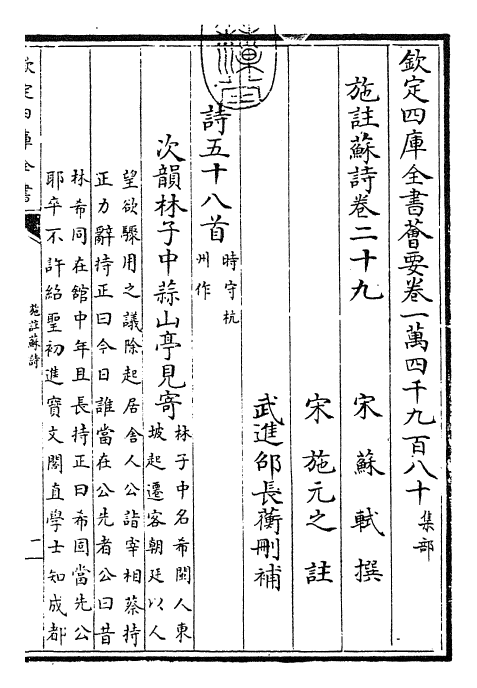 欽定四庫全書薈要卷一萬四千九百八十 集部
施註蘇詩卷二十九
宋 蘇軾 撰
宋 施元之 註
武進邵長蘅刪補
詩五十八首
時守杭
州作
次韻林子中蒜山亭見寄
林子中名希閩人東
坡起遷客朝廷以人
望欲驟用之議除起居舍人公詣宰相蔡持
正力辭持正曰今日誰當在公先者公曰昔
林希同在館中年且長持正曰希固當先公
耶卒不許紹聖初進寳文閣直學士知成都
欽定四庫全書
施註蘇詩
一